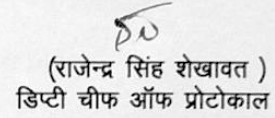 (राजेन्द्र सिंह शेखावत )
डिप्टी चीफ ऑफ प्रोटोकाल